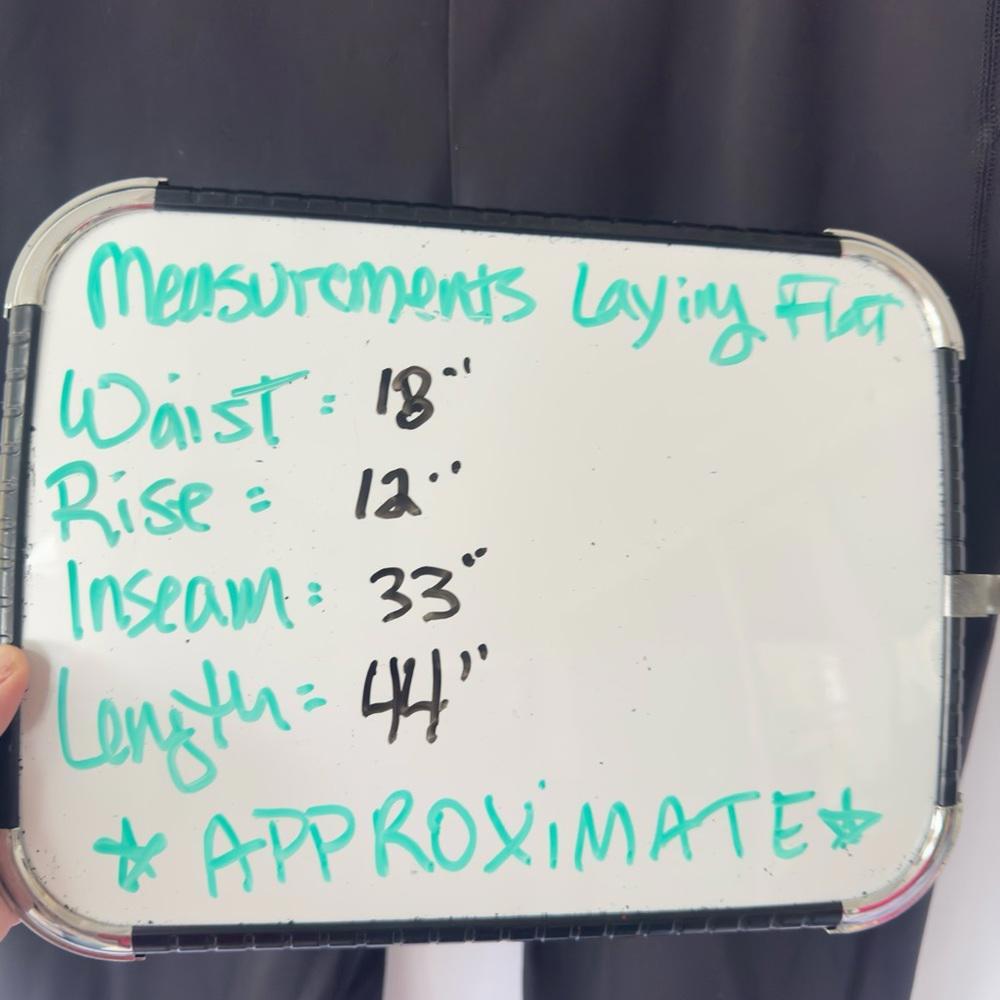 Measurements Laying Flat
Waist: 18"
Rise: 12"
Inseam: 33"
Length: 44"
☆ APPROXiMATE ☆